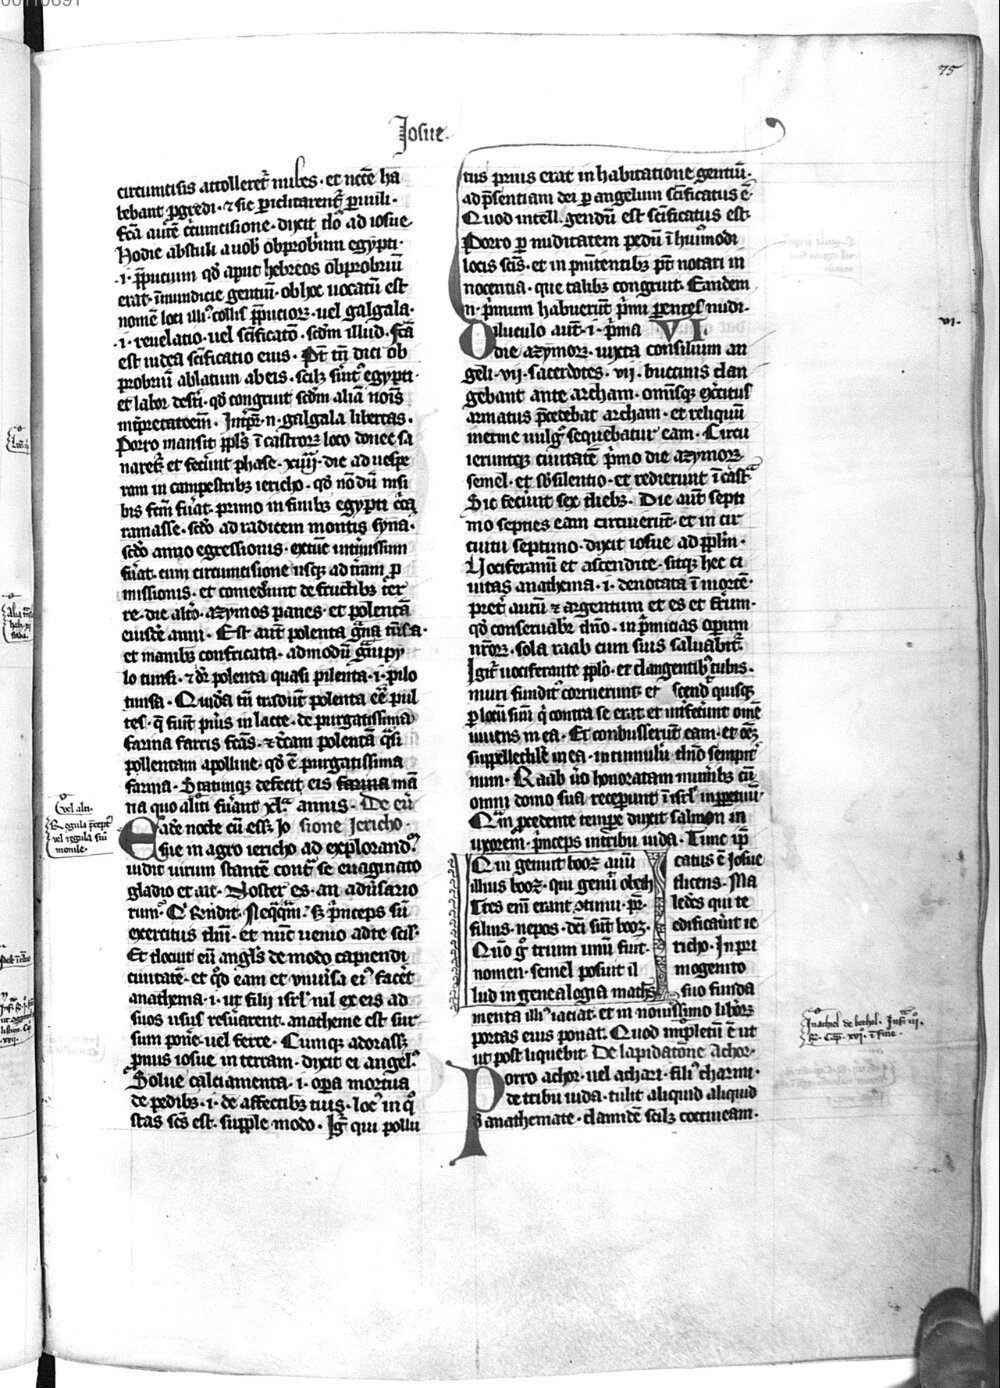 75
Iosue.
circumcisis attolleret᷑ nubes · et nccē ha
bebant ꝓgredi · ⁊ sic periclitarent᷑ p̄ nuili ·
fcā autē cir̄cūcisione · dixit dn̄s ad iosue ·
Hodie abstuli auob̄ obprobrium egypti ·
·i· p̄puciium qd̄ aput hebreos obprobriū
erat · īmundicie gentiū · ob hoc uocatū est
nomē loci illiꝰ collis p̄puciorꝝ · uel galgala ·
·i· reuelatio · uel sc̄ificatō · scd̄m illud · fc̄a
est iudea sc̄ificatio eius · Pt̄ tn̄ dici ob
probriū ablatum ab eis · scilꝫ seruitꝰ egypti ·
et labor deserti · qd̄ congruit scd̄m aliā nois
int̄p̄tatoem · Int̄p̄r · n · galgala libertas ·
Porro mansit ppl̄s ī castrorꝝ loco donec sa
narētᷣ et fecer̄t phase · xiiij · die ad uespe
ram in campestribꝫ iericho · qd̄ nō dū nisi
bis fcm̄ fu̾at · primo in finibꝫ egypti cc̄a
ramasse · scdo ad radicem montis syna ·
scdo anno egressionis · extūc int̄missum
fu̾at · cum circumcisione usqꝫ ad t̾ram p̄
missionis · et comeder̄t de fructibꝫ ter
re · die alt̾o · azymos panes · et polentā
eiusdē anni · Est aut̄ polenta g̾na tu̾sa ·
et manibꝫ confricata · admodū g̾ui py
lo tunsi · ⁊ dr̄ polenta quasi pilenta · i · pilo
tunsa · Quidā tn̄ tradunt polenta eē pul
tes · q̄ fiunt pͥus in lacte · de purgatissima
farina farris fcās · ⁊ dcam polentā q̄si
pollentam apolline · qd̄ ē purgatissima
farina · Statimqꝫ defecit eis farina man
na quo aliti fu̾ant xlᵃ annis · De eu̾
Eadē nocte cū essꝫ Io sione Iericho ·
sue in agro iericho ad explorand̄ꝰ
uidit uirum stantē cont̾ se euaginato
gladio et ait · Noster es · an adu̾sario
rum · Qͥ respondit · Neq̄q̄m · sꝫ p̾nceps sū
exercitus dn̄i · et nūc uenio ad te scil̄ ·
Et docuit eū angl̄s de modo capiendi
ciuitatē · et qd̄ eam et uniu̾sa eiꝰ facet
anathema · i · ut filii isrl̄ nil ex eis ad
suos usus resu̾arent · anatheme est sur
sum pone · uel ferre · Cumqꝫ adorassꝫ
pronus iosue in terram · dixit ei angelꝰ
Solue calciamenta · i · opa mortua
de pedibꝫ · i · de affectibꝫ tuis · locꝰ in q̊
stas scs̄ est · supple modo · Igr̄ qui pollu
tus prius erat in habitatione gentiū ·
ad p̄sentiam dei p angelum sc̄ificatus ē ·
Quod intell · gendū est sc̄ificatus est ·
Porro p nuditatem pedū ī huiꝰmodi
locis scis̄ · et in penitentibꝫ pt̄ notari in
nocentia · que talibꝫ congruit · Eandem
n · p̾mum habuerūt p̾mi pentes nudi ·
Diluculo aut̄ · i · p̾ma VI ·
die azymorꝫ · iuxta consilium an
geli · vij · sacerdotes · vij · buccinis clan
gebant ante archam · omnisqꝫ exercitus
armatus p̄cedebat archam · et reliquū
inerme uulgꝰ sequebatur eam · Circu
ieruntqꝫ ciuitatē p̾mo die azymorꝫ
semel · et sb̄silentio · et redierunt ī castᵃ
Sic fecerūt sex diebꝫ · Die aut̄ septi
mo septies eam circuierūt · et in cir
cuitu septimo · dixit iosue ad pplm̄ ·
Uociferamī et ascendite · sitqꝫ hec ci
uitas anathema · i · denotata ī morte ·
preter aurū ⁊ argentum et es et ferrum ·
qd̄ conseruabr̄ dn̄o · in p̾micias operum
nr̄orꝫ · sola raab cum suis saluabit᷑ ·
Igit᷑ uociferante ppl̄o · et clangentibꝫ tubis ·
muri fundit᷑ corruerunt · et scend̄ quisqꝫ
p locū suū q̄ contra se erat et int̾fecer̄t omē
uiuens in ea · Et conbusserūt eam · et oēꝫ
suppellectilē in ea · in cumulū dn̄o sempit
num · Raab u̾o honoratam muneribꝫ cū
omni domo sua receperunt ī isrl̄ inp̄petuū
Quā precedente tempore duxit salmon in
uxorem · p̾nceps in tribu iuda · Tunc ip̄
Qui genuit booz auū
illius booz · qui genuit obeth
Tres enī erant · ꝯtinui · pr̄ ·
filius · nepos · dc̄i sūt booz ·
Quō g̊ trium unū fuit ·
nomen · semel posuit il
lud in genealogia math̄s
catus ē Iosue
dicens · Ma
ledcs̄ qui te
edificauit̄ ie
richo · In pri
mogenito
suo funda
menta illiꝰ iaciat · et in nouissimo libᵒrꝫ
portas eius ponat · Quod impletū ē ut
ut post liquebit · De lapidatione achor ·
Porro achor · uel achari · filiꝰ charmi ·
de tribu iuda · tulit aliquid aliquid
d̾ anathemate · clamidē scilꝫ coccineam ·
vi ·
uel alti ·
Regula p̄cept
uel regula siue
monile ·
In achiel de bethel · Inf̄ iij ·
R̄ · Cap̄ · xvj · ī fine ·